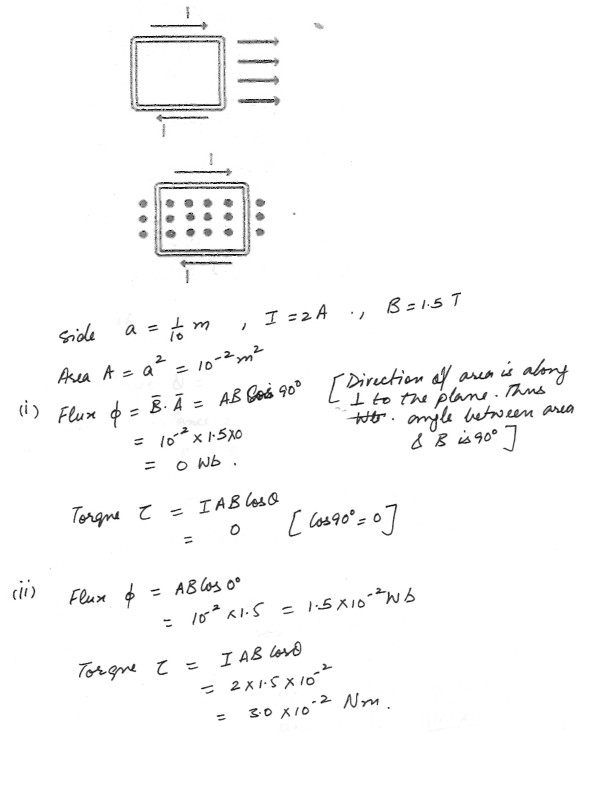 I
I
I
I
Side a = 1/10 m , I = 2A ., B = 1.5 T
Area A = a² = 10⁻² m²
(i) Flux ϕ = B̄. Ā = AB Cos 90° [Direction of area is along
⊥ to the plane. Thus
= 10⁻² × 1.5 × 0 Wb. angle between area
& B is 90°]
= 0 Wb.
Torque τ = IAB Cosθ
= 0 [Cos90° = 0]
(ii) Flux ϕ = AB Cos 0°
= 10⁻² × 1.5 = 1.5 × 10⁻² Wb
Torque τ = IAB Cosθ
= 2 × 1.5 × 10⁻²
= 3.0 × 10⁻² Nm.